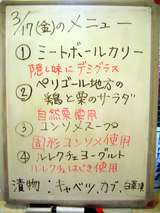 3/17(金)のメニュー
① ミートボールカリー
隠し味にデミグラス
② ペリゴール地方の
鶏と栗のサラダ
自然栗使用
③ コンソメスープ
固形コンソメ使用
④ ルレクチェヨーグルト
ルレクチェはざき使用
漬物:キャベツ、カブ、白菜漬